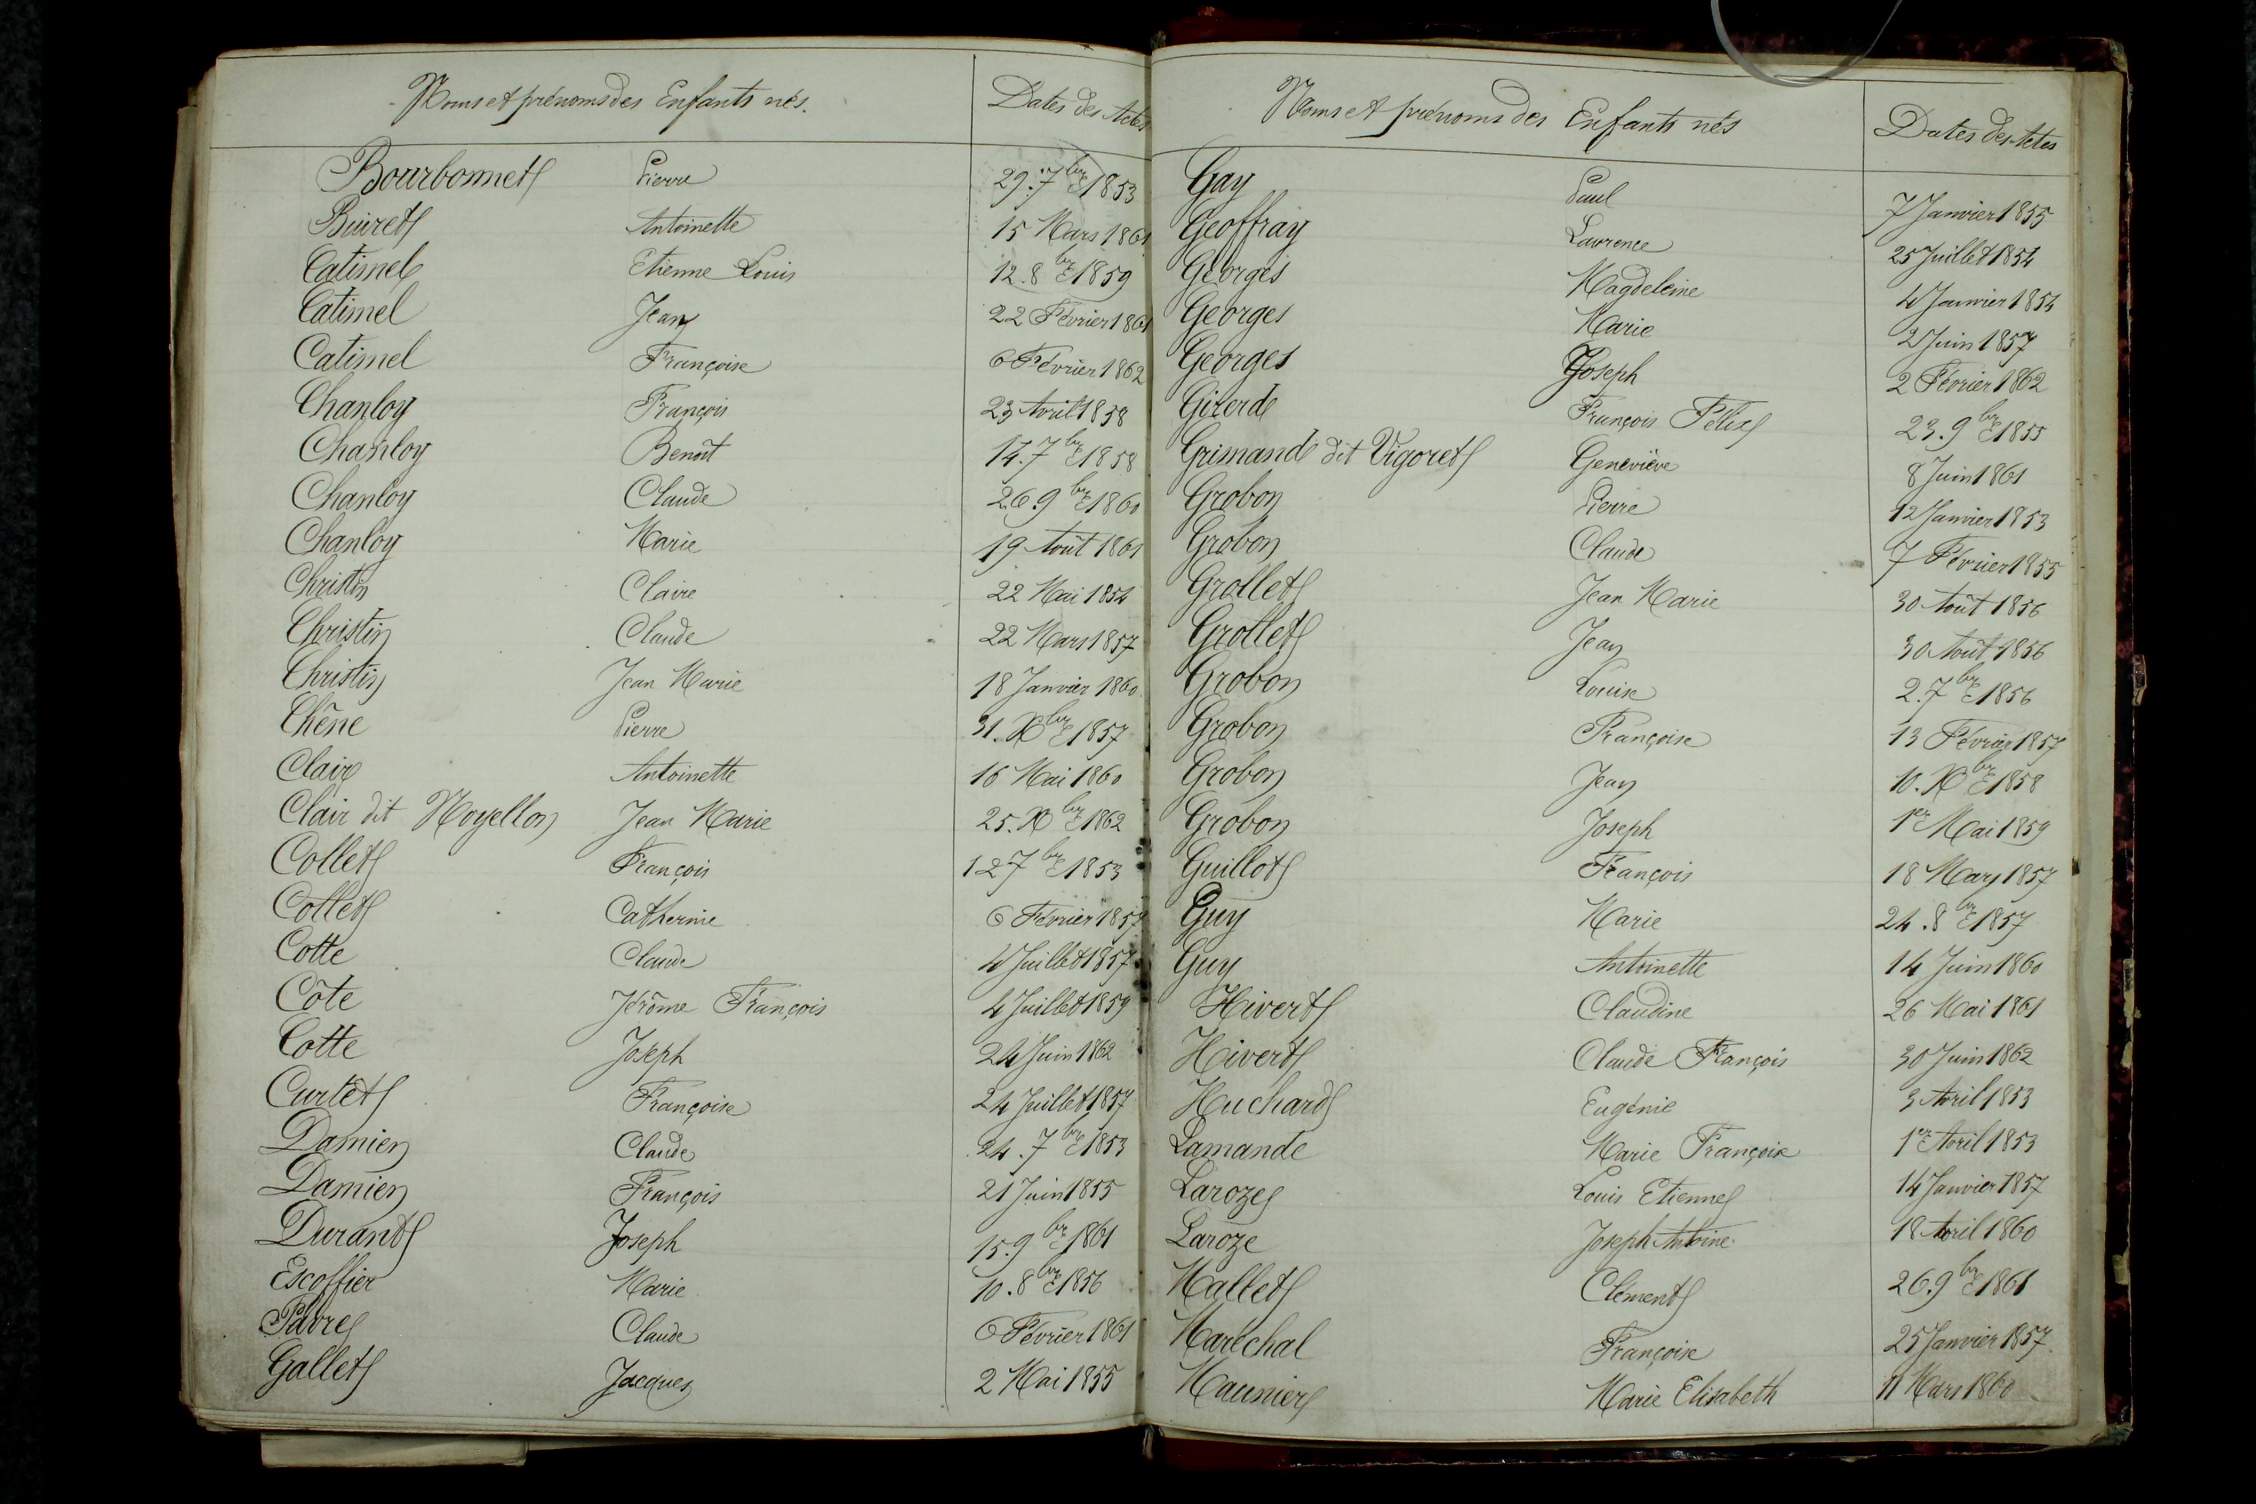 Noms et prénoms des Enfants nés. Dates des Actes
Bourbonnet Pierre 29. 7bre 1853
Buiret Antoinette 15 Mars 1861
Catimel Etienne Louis 12. 8bre 1859
Catimel Jean 22 Février 1861
Catimel Françoise 6 Février 1862
Chanloy François 23 Avril 1858
Chanloy Benoît 14. 7bre 1858
Chanloy Claude 26. 9bre 1860
Chanloy Marie 19 Août 1861
Christin Claire 22 Mai 1854
Christin Claude 22 Mars 1857
Christin Jean Marie 18 Janvier 1860
Chêne Pierre 31. Xbre 1857
Clair Antoinette 16 Mai 1860
Clair dit Noyellon Jean Marie 25. Xbre 1862
Collet François 12 7bre 1853
Collet Catherine 6 Février 1857
Cotte Claude 4 Juillet 1857
Côte Jérôme François 4 Juillet 1859
Cotte Joseph 24 Juin 1862
Curtet Françoise 24 Juillet 1857
Damien Claude 24. 7bre 1853
Damien François 21 Juin 1855
Durant Joseph 15. 9bre 1861
Escoffier Marie 10. 8bre 1856
Favre Claude 6 Février 1861
Gallet Jacques 2 Mai 1855
Noms et prénoms des Enfants nés Dates des Actes
Gay Paul 7 Janvier 1855
Geoffray Laurence 25 Juillet 1854
Georges Magdeleine 4 Janvier 1854
Georges Marie 2 Juin 1857
Georges Joseph 2 Février 1862
Girerd François Félix 23. 9bre 1855
Grimand dit Vigoret Geneviève 8 Juin 1861
Grobon Pierre 12 Janvier 1853
Grobon Claude 7 Février 1855
Grollet Jean Marie 30 Août 1856
Grollet Jean 30 Août 1856
Grobon Louise 2. 7bre 1856
Grobon Françoise 13 Février 1857
Grobon Jean 10. Xbre 1858
Grobon Joseph 1er Mai 1859
Guillot François 18 Mars 1857
Guy Marie 24. 8bre 1857
Guy Antoinette 14 Juin 1860
Hivert Claudine 26 Mai 1861
Hivert Claude François 30 Juin 1862
Huchard Eugénie 3 Avril 1853
Lamande Marie Françoise 1er Avril 1853
Laroze Louis Etienne 14 Janvier 1857
Laroze Joseph Antoine 18 Avril 1860
Mallet Clément 26. 9bre 1861
Maréchal Françoise 25 Janvier 1857
Maunier Marie Elisabeth 11 Mars 1860